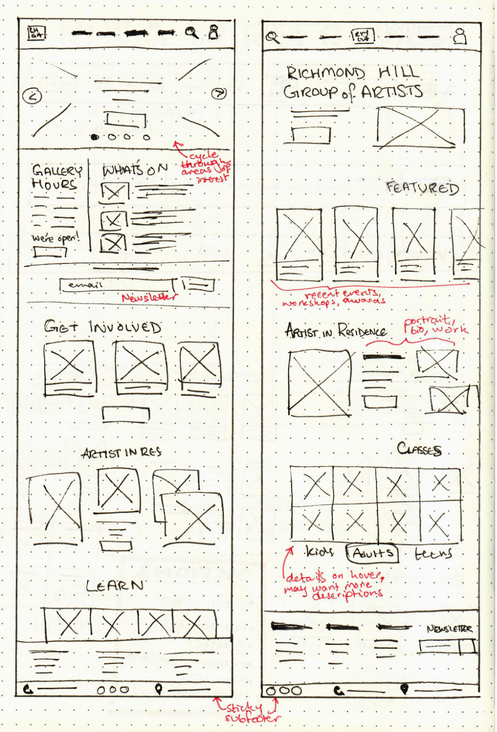 cycle
through
areas of
interest
GALLERY
HOURS
We're open!
WHAT'S ON
email
Newsletter
GET INVOLVED
ARTIST IN RES
LEARN
RICHMOND HILL
GROUP of ARTISTS
FEATURED
recent events,
workshops, awards
ARTIST IN RESIDENCE
portrait,
bio, work
CLASSES
kids Adults teens
details on hover,
may want more
descriptions
NEWSLETTER
sticky
subfooter